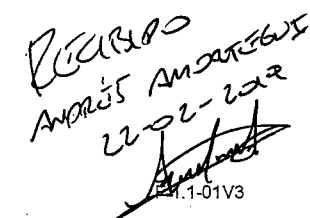 RECIBIDO
ANDRÉS AMORTEGUI
22-02-2012
F-1.1-01V3